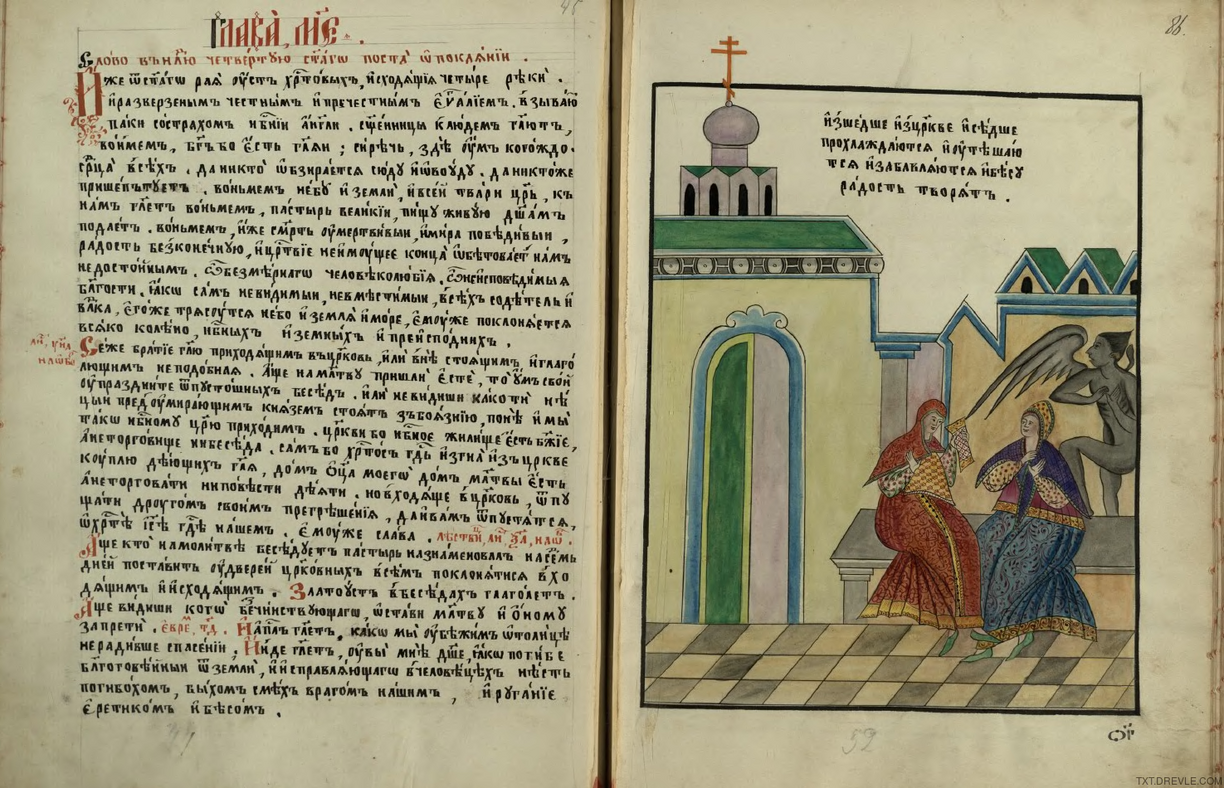 Глава, м҃е.
45
Слово въ нл҃ю четвертую ст҃агѡ поста ѿ покаѧнїи.
Иже ѿ ст҃агѡ раѧ оустъ хрт҃овыхъ, исходѧщїѧ четыре рѣки.
и разверзенымъ честнымъ и пречестнымъ еѵⷢ҇алїемъ. взываю
паки со страхомъ и бж҃їи англи. сщ҃енницы к людемъ гл҃ютъ,
вонмемъ, бг҃ъ бо есть глаѧи; сирѣчь, здѣ оумъ когождо.
срⷣца всѣхъ. да никто ѡбзираетсѧ сюду и ѡвоуду. да никтоже
пришепътуетъ. воньмемъ небу и земли, и всей твари цр҃ь, къ
намъ гл҃етъ воньмемъ, пастырь великїи, пищу живую дш҃амъ
подаетъ. воньмемъ, иже смр҃ть оумертвивыи, и мира побѣдивыи,
радость безконечную, и црⷭ҇твїе неимоущее конца ѡбѣтоваетъ намъ
недостойнымъ. ѽ безмѣрнагѡ человѣколюбїѧ. ѽ неисповѣдимыѧ
бл҃гости. ꙗкѡ самъ невидимыи, невмѣстимыи, всѣхъ содѣтель и
вл҃ка, егоже трѧсоутсѧ небо и землѧ и море, емоуже поклонѧетсѧ
всѧко колѣно, нб҃ныхъ и земныхъ и преисподнихъ.
Се же братїе гл҃ю приходѧщимъ въ црк҃овь, или внѣ стоѧщимъ и глаго
лющимъ неподобнаѧ. Аще на млт҃ву пришли есте, то оумъ свой
оупраздните ѿ пустошныхъ бесѣдъ. или не видиши како ти нѣ
цыи пред оумирающимъ кнѧземъ стоѧтъ зъ боѧзнїю, понѣ и мы
такѡ нб҃ному цр҃ю приходимъ. црк҃ви бо нб҃ное жилище есть бж҃їе,
а не торговище ни бесѣда. самъ бо хрⷭ҇тосъ гдⷭ҇ь изгна изъ цркве
коуплю дѣющихъ глаѧ, домъ оц҃а моегѡ домъ млт҃вы есть
а не торговати ни повѣсти дѣѧти. но входѧще в црк҃овь, ѿпу
щати дроугомъ своимъ прегрѣшенїѧ, да и вамъ ѿпустѧтсѧ,
ѡ хрⷭ҇тѣ іс҃ѣ гдⷭ҇ѣ нашемъ. емоуже слава.
Аще кто на молитвѣ бесѣдуетъ пастырь назнаменовалъ на семь
дней поставить оу дверей црк҃овныхъ всѣмъ поклонѧтисѧ вхо
дѧщимъ и исходѧщимъ. Златоустъ в бесѣдахъ глаголетъ.
Аще видиши когѡ безчинствующагѡ, ѡстави млт҃ву и ѡному
запрети. евре, тд. И ап҃лъ гл҃етъ, какѡ мы оубѣжимъ ѡ толицѣ
нерадивше спасенїи, Инде гл҃етъ, оувы мнѣ дш҃е, ꙗкѡ погибе
благоговѣйныи ѿ земли, и исправлѧющагѡ в человѣцѣхъ нѣсть
погибохомъ, быхомъ смѣхъ врагомъ нашимъ, и руганїе
еретикомъ и бѣсомъ.
86.
изшедше изъ цркве и сѣдше
прохлаждаютсѧ и оутѣшаю
тсѧ и забавлѧютсѧ и бѣсу
радость творѧтъ.
52
TXT.DREVLE.COM